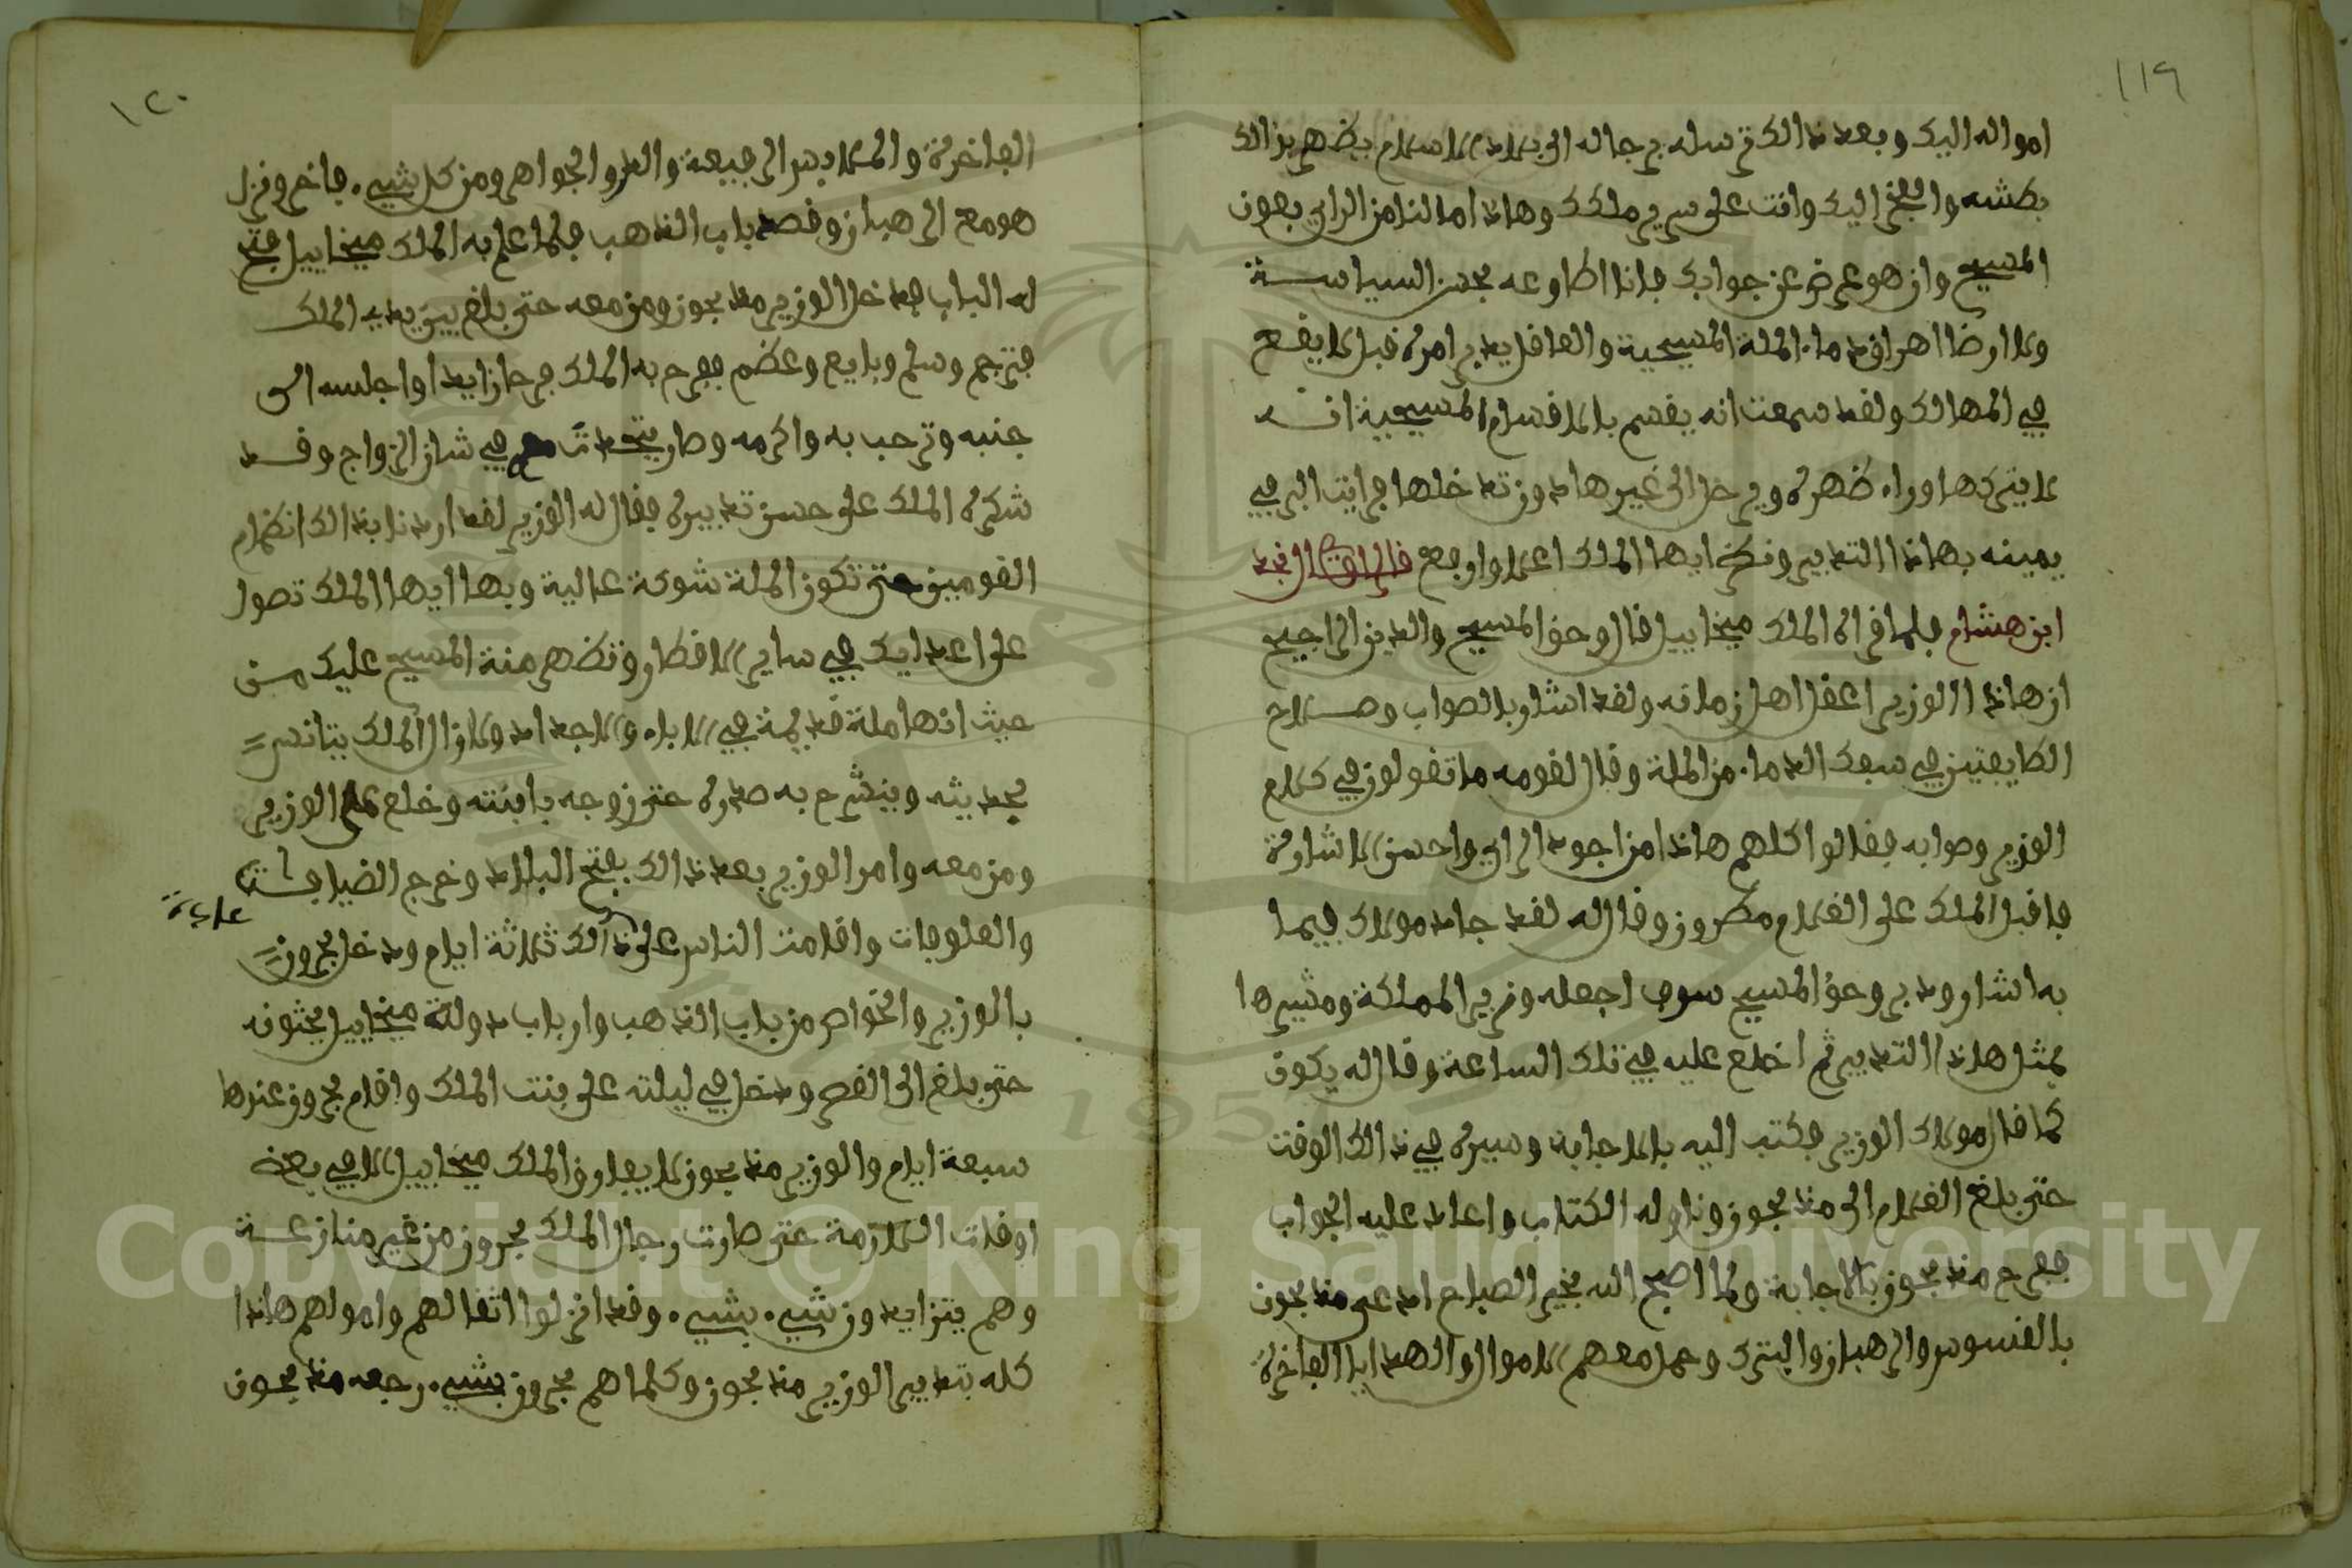 ١١٩
امواله اليك وبعد ذالك ترسله برجاله الى بلاد الاسلام يظهر بذالك
بطشه والفخر اليك وانت على سرير ملكك وهاذا امالنا من الراي بعون
المسيح وان هو عرض عن جوابك فانا اطاوعه بحسن السياسة
ولا ارضا اهراق دماء الملة المسيحية والعاقل يدبر امره قبل لا يقع
في المهالك ولقد سمعت انه يقسم بالاقسام المسيحية انه
لا يتركها وراء ظهره ويرحل الى غيرها دون تدخلها فرايت البر في
يمينه بهاذا التدبير ونظر ايها الملك اعلا وارفع قال الراوي النجد
ابن هشام فلما قراه الملك ميخاييل قال وحق المسيح والدين الرجيح
ان هاذا الوزير اعقل اهل زمانه ولقد اشار بالصواب وصلاح
الطايفتين في سفك الدماء من الملة وقال لقومه ما تقولون في كلام
الوزير وصوابه فقالوا كلهم هاذا من اجود الراي واحسن الاشارة
فاقبل الملك على الغلام مطرون وقال له لقد جاد مولاك فيما
به اشار ودبر وحق المسيح سوف اجعله وزير المملكة ومشيرها
بمثل هاذا التدبير ثم اخلع عليه في تلك الساعة وقال له يكون
كما قال مولاك الوزير فكتب اليه بالاجابة وسيره في ذالك الوقت
حتى بلغ الغلام الى منذ بجون وناوله الكتاب واعاد عليه الجواب
ففرح منذ بجون بالاجابة ولما اصبح الله بخير الصباح ادعى منذ بجون
بالقسوس والرهبان والبترك وحمل معهم الاموال والهدايا الفاخرة
١٢٠
الفاخرة والملابس الرفيعة والدر والجواهر ومن كل شيء فاخر ونزل
هو مع الرهبان وقصد باب الذهب فلما علم به الملك ميخاييل فتح
له الباب فدخل الوزير منذ بجون ومن معه حتى بلغ بين يديه الملك
فترجم وسلم وبايع وعظم ففرح به الملك فرحا زايدا واجلسه الى
جنبه وترحب به واكرمه وصار يتحدث معه في شان الزواج وقد
شكره الملك على حسن تدبيره فقال له الوزير لقد اردنا بذالك انضمام
القومين حتى تكون الملة شوكة عالية وبها ايها الملك تصول
على اعدايك في ساير الاقطار وتظهر منة المسيح عليك من
حيث انها ملة قديمة في الاباء والاجداد ولازال الملك يتانس
بحديثه وينشرح به صدره حتى زوجه بابنته وخلع على الوزير
ومن معه وامر الوزير بعد ذالك بفتح البلاد وخرج الضيافة
والعلوفات واقامت الناس على ذالك ثلاثة ايام ودخل بحرون
بالوزير والخواص من باب الذهب وارباب دولة ميخاييل يحثونه
حتى بلغ الى القصر ودخل في ليلته على بنت الملك واقام بحرون عندها
سبعة ايام والوزير منذ بجون لا يفارق الملك ميخاييل الا في بعض
اوقات الملازمة حتى صارت رجال الملك بحرون من غير منازعة
وهم يتزايدون شيء بشيء وقد انزلوا اثقالهم واموالهم هاذا
كله بتدبير الوزير منذ بجون وكلما هم بحرون بشيء رجعه منذ بجون